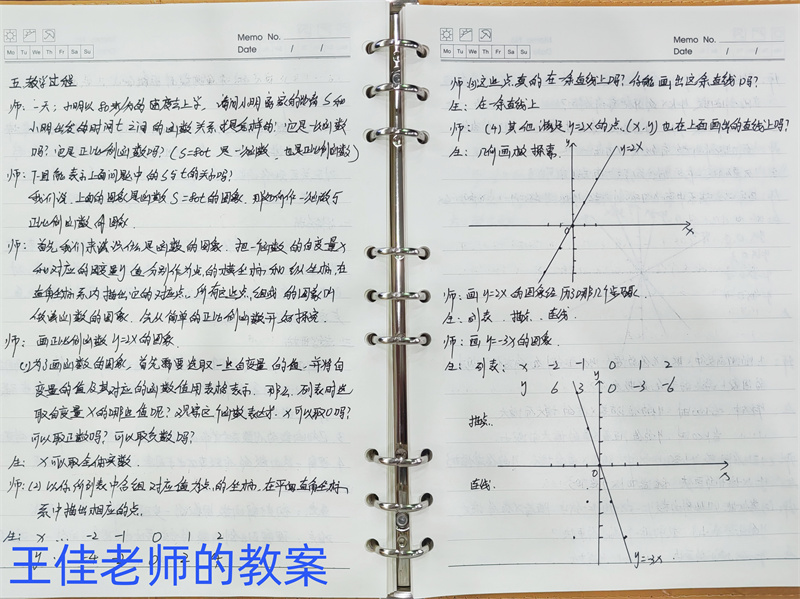 Memo No.
Mo Tu We Th Fr Sa Su
Date / /
五.教学过程
师:一天,小明以80米/分的速度去上学,请问小明离家的距离S和
小明出发的时间t之间的函数关系式是怎样的?它是一次函数
吗?它是正比例函数吗?(S=80t 是一次函数,也是正比例函数)
师:下图能表示上面问题中的S与t的关系吗?
我们说,上面的图象是函数S=80t的图象.那如何作一次函数与
正比例函数的图象.
师:首先我们来说说什么是函数的图象.把一个函数的自变量x
和对应的因变量y值分别作为点的横坐标和纵坐标,在
直角坐标系内描出它的对应点,所有这些点组成的图象叫
做该函数的图象.先从简单的正比例函数开始探究.
师:画正比例函数y=2x的图象.
(1)为了画函数的图象,首先需要选取一些自变量的值,并将自
变量的值及其对应的函数值用表格表示.那么,列表时选
取自变量x的哪些值呢?观察这个函数表达式,x可以取0吗?
可以取正数吗?可以取负数吗?
生:x可取全体实数.
师:(2)以你所列表中各组对应值为点的坐标,在平面直角坐标
系中描出相应的点.
生: x … -2 -1 0 1 2
王佳老师的教案
Memo No.
Mo Tu We Th Fr Sa Su
Date / /
师:(3)这些点真的在一条直线上吗?你能画出这条直线吗?
生:在一条直线上
师:(4)其他满足y=2x的点(x,y)也在上面画出的直线上吗?
生:几何画板探索.
y
y=2x
0
x
师:画y=2x的图象经历了哪几个步骤.
生:列表、描点、连线.
师:画y=-3x的图象.
生:列表: x -2 -1 0 1 2
y 6 3 0 -3 -6
描点.
y
连线.
0
x
y=-3x.